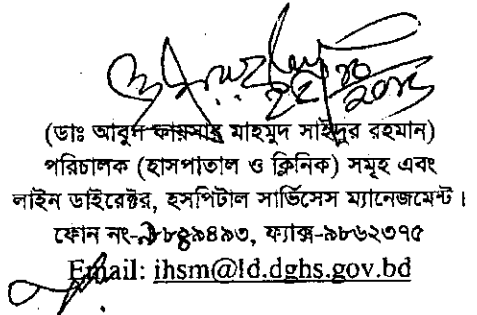 (ডাঃ আবুল ফায়সাহ মাহমুদ সাইদুর রহমান)
পরিচালক (হাসপাতাল ও ক্লিনিক) সমূহ এবং
লাইন ডাইরেক্টর, হসপিটাল সার্ভিসেস ম্যানেজমেন্ট।
ফোন নং-৯৮৮৯৪৯৩, ফ্যাক্স-৯৮৬২৩৭৫
Email: ihsm@ld.dghs.gov.bd